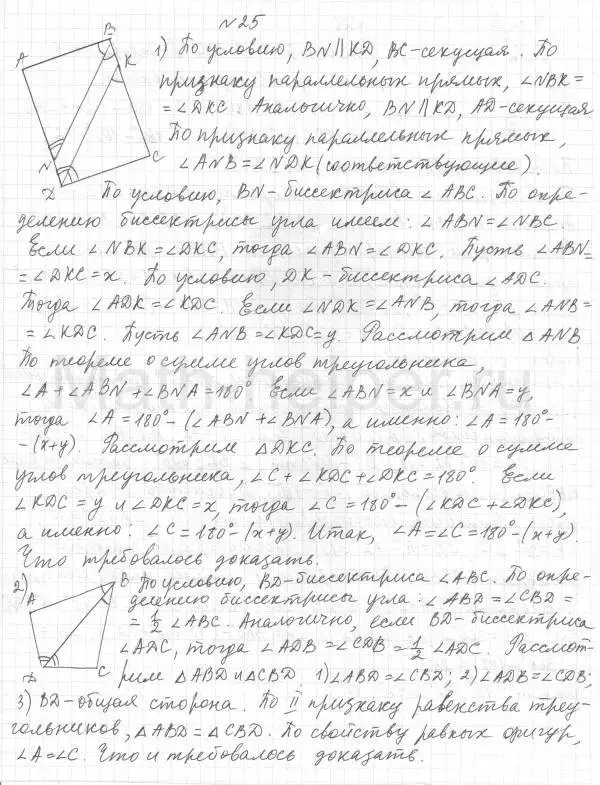 №25
B
A
K
N
C
D
1) По условию, BN∥KD, BC-секущая. По
признаку параллельных прямых, ∠NBK=
=∠DKC. Аналогично, BN∥KD, AD-секущая
По признаку параллельных прямых,
∠ANB=∠NDK (соответствующие).
По условию, BN-биссектриса ∠ABC. По опре-
делению биссектрисы угла имеем: ∠ABN=∠NBC.
Если ∠NBK=∠DKC, тогда ∠ABN=∠DKC. Пусть ∠ABN=
=∠DKC=x. По условию, DK-биссектриса ∠ADC.
Тогда ∠ADK=∠KDC. Если ∠NDK=∠ANB, тогда ∠ANB=
=∠KDC. Пусть ∠ANB=∠KDC=y. Рассмотрим △ANB
По теореме о сумме углов треугольника,
∠A+∠ABN+∠BNA=180° Если ∠ABN=x и ∠BNA=y,
тогда ∠A=180°-(∠ABN+∠BNA), а именно: ∠A=180°-
-(x+y). Рассмотрим △DKC. По теореме о сумме
углов треугольника, ∠C+∠KDC+∠DKC=180°. Если
∠KDC=y и ∠DKC=x, тогда ∠C=180°-(∠KDC+∠DKC),
а именно: ∠C=180°-(x+y). Итак, ∠A=∠C=180°-(x+y).
Что требовалось доказать.
2)
B
A
D
C
По условию, BD-биссектриса ∠ABC. По опре-
делению биссектрисы угла: ∠ABD=∠CBD=
=½∠ABC. Аналогично, если BD-биссектриса
∠ADC, тогда ∠ADB=∠CDB=½∠ADC. Рассмот-
рим △ABD и △CBD. 1)∠ABD=∠CBD; 2)∠ADB=∠CDB;
3) BD-общая сторона. По II признаку равенства треу-
гольников, △ABD=△CBD. По свойству равных фигур,
∠A=∠C. Что и требовалось доказать.